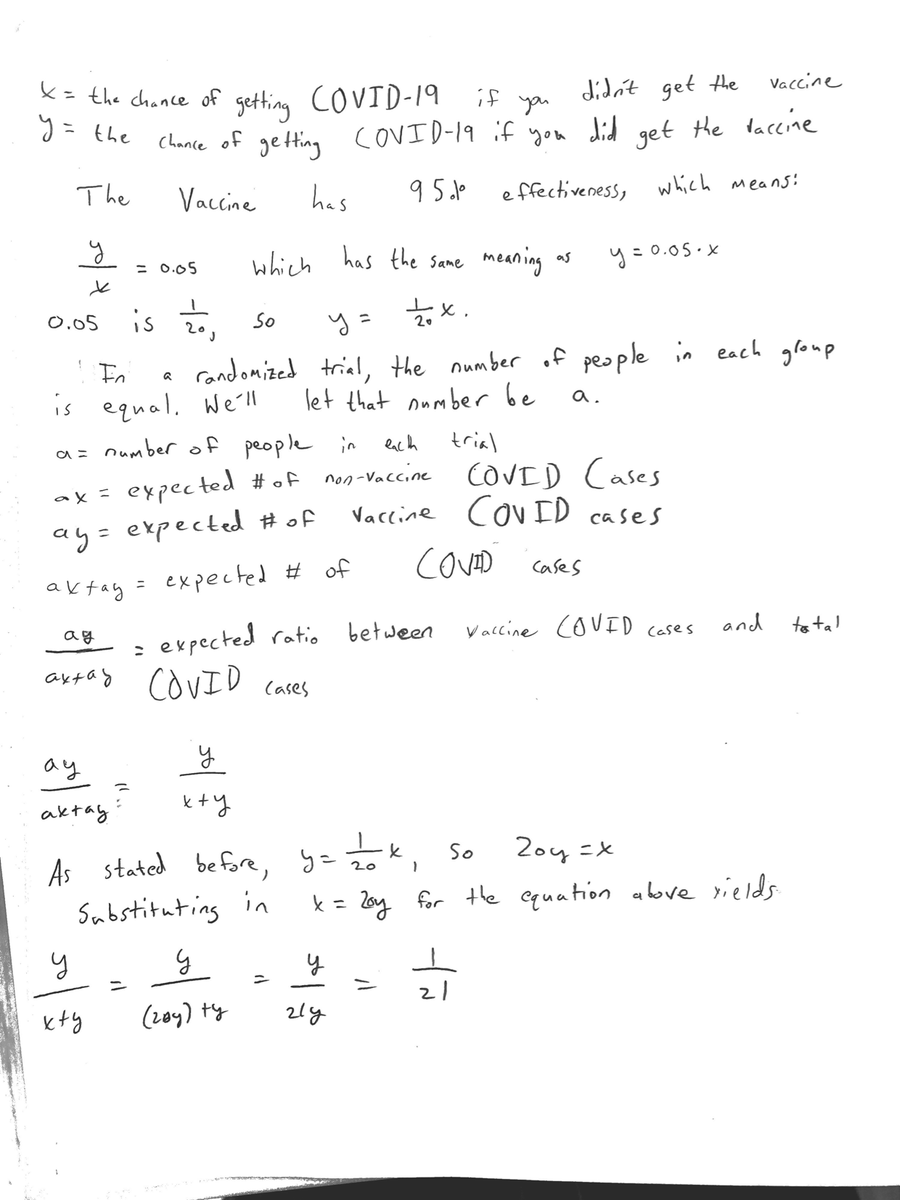 x = the chance of getting COVID-19 if you didn't get the vaccine
y = the chance of getting COVID-19 if you did get the vaccine
The Vaccine has 95% effectiveness, which means:
y/x = 0.05 which has the same meaning as y = 0.05·x
0.05 is 1/20, so y = 1/20 x.
In a randomized trial, the number of people in each group
is equal. We'll let that number be a.
a = number of people in each trial
ax = expected # of non-vaccine COVID Cases
ay = expected # of Vaccine COVID cases
ax+ay = expected # of COVID cases
ay/ax+ay = expected ratio between vaccine COVID cases and total
COVID cases
ay/ax+ay = y/x+y
As stated before, y = 1/20 x, so 20y = x
Substituting in x = 20y for the equation above yields
y/x+y = y/(20y)+y = y/21y = 1/21